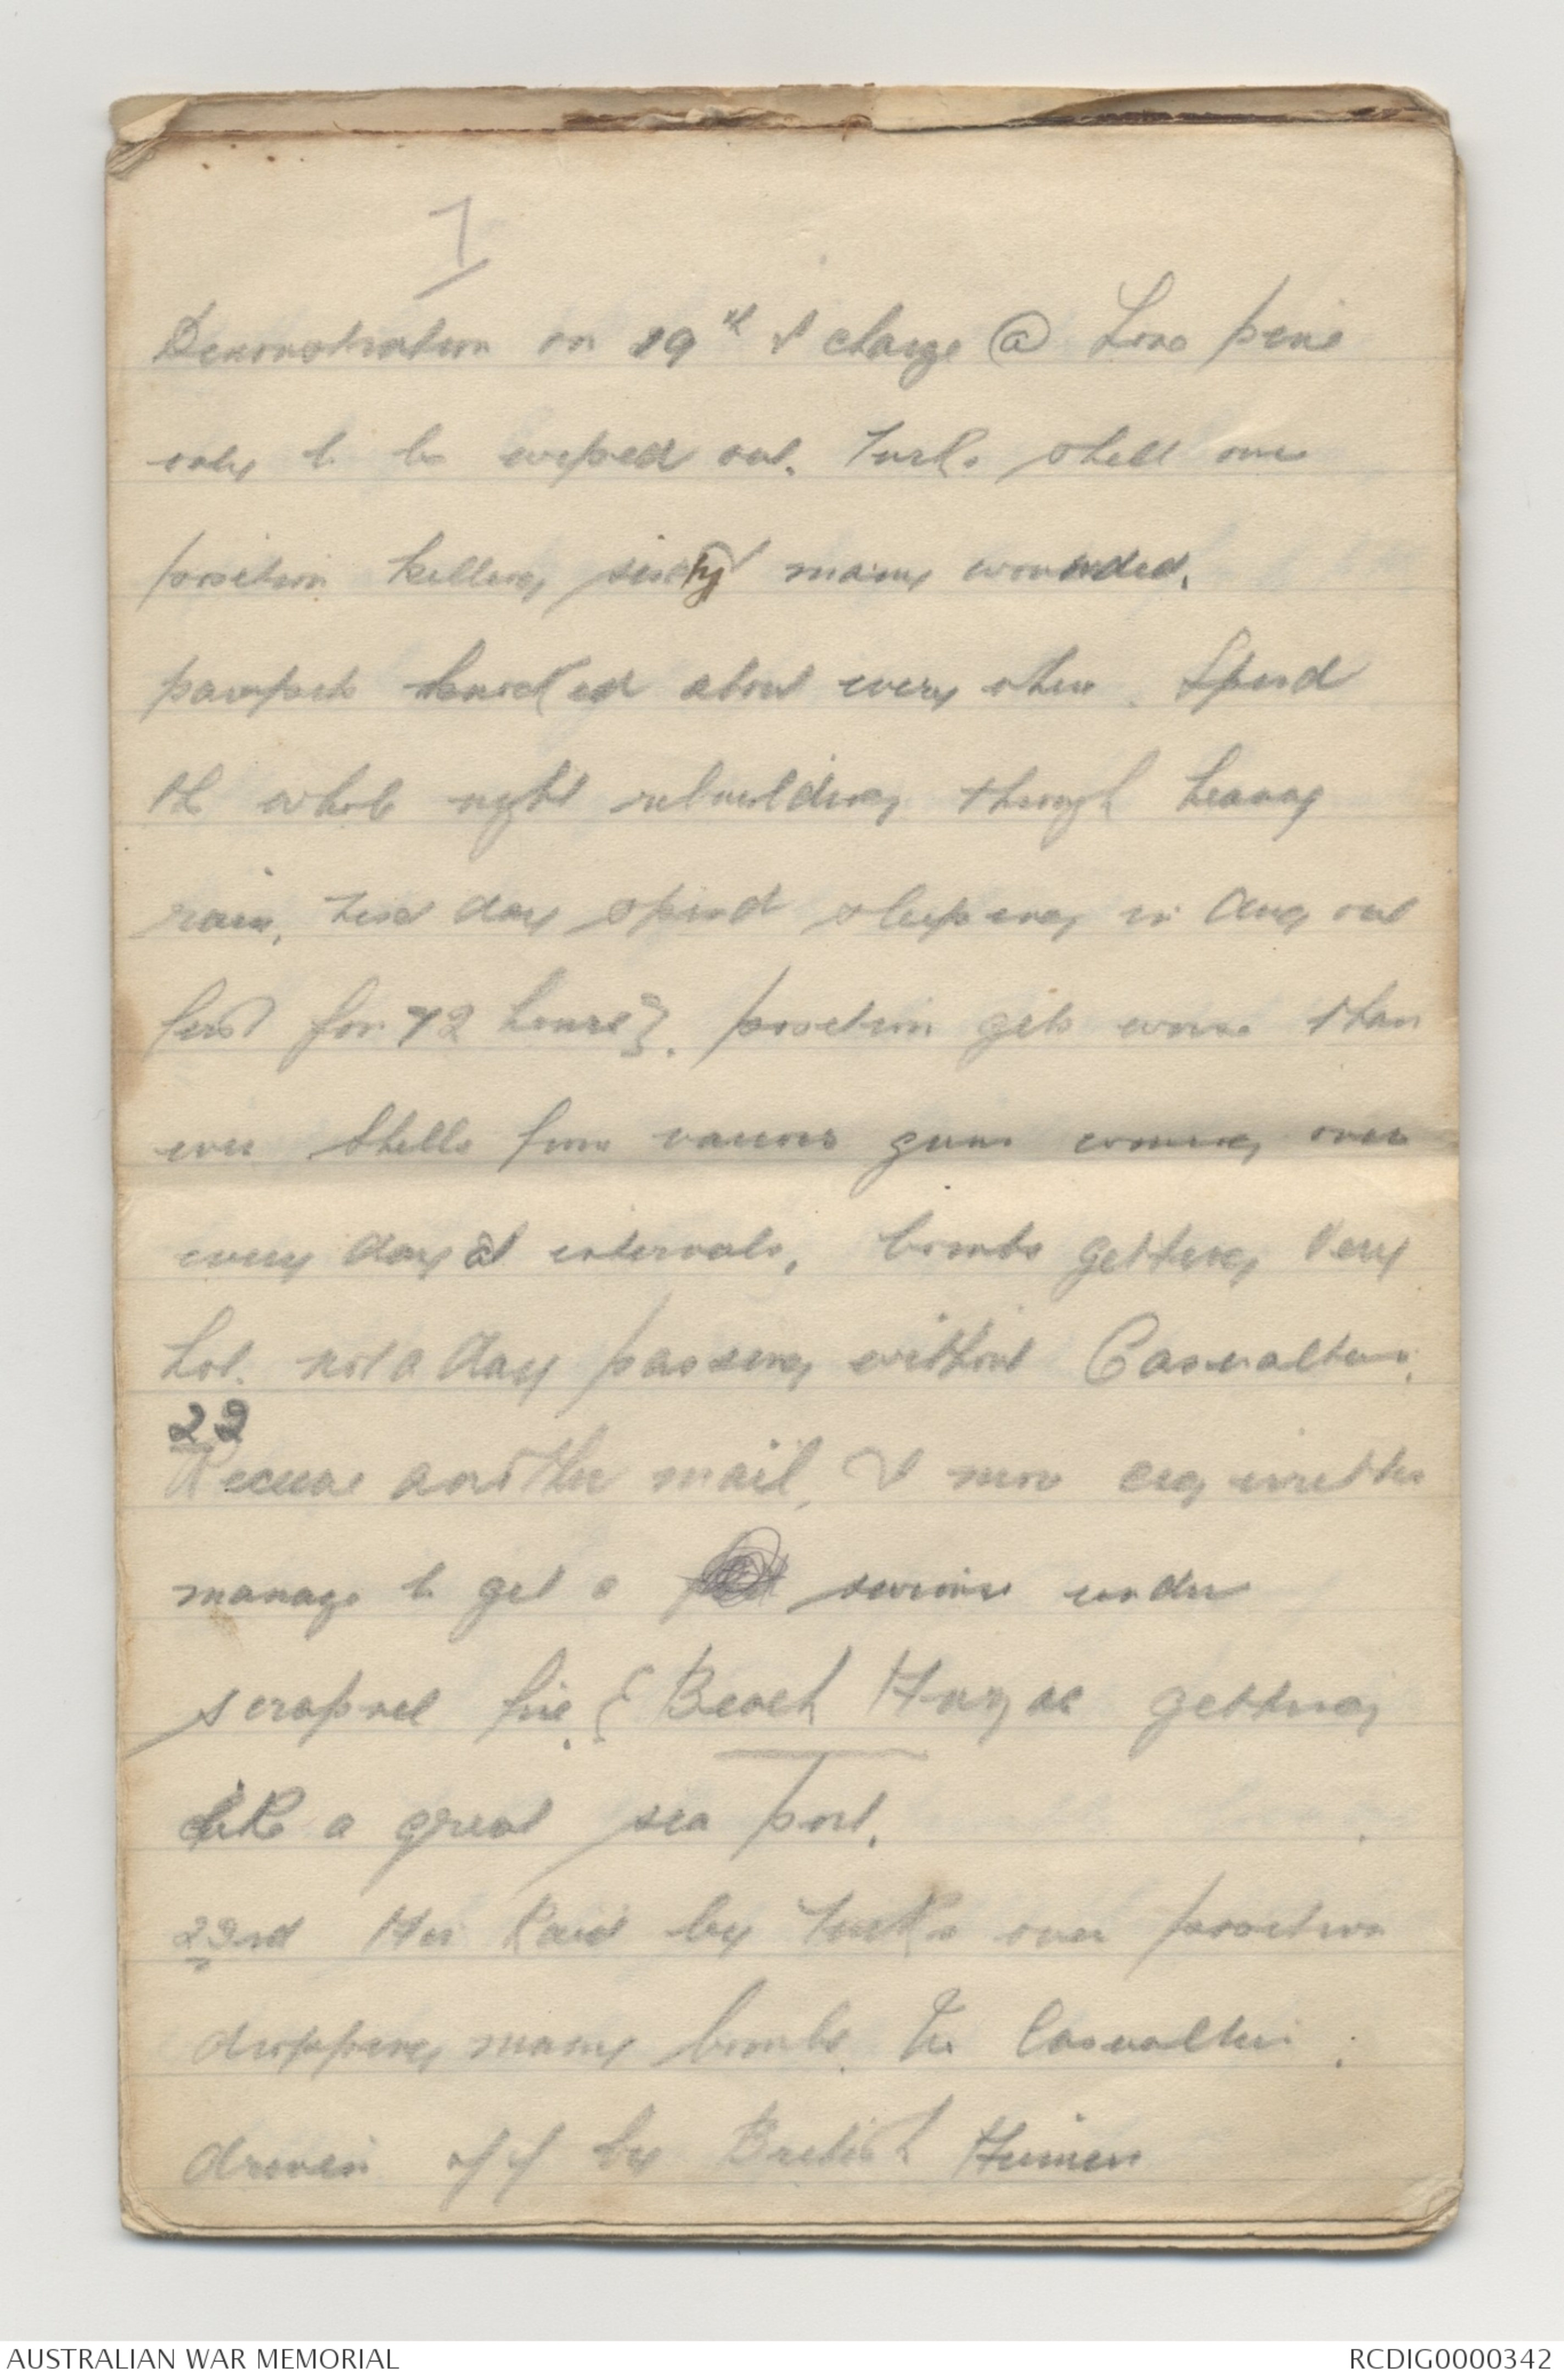 7
Demonstration on 19th & charge @ Lone pine
only to be wiped out. Turks shell our
position killing sixty many wounded.
parapets knocked about every where. Spend
the whole night rebuilding through heavy
rain, next day spent sleeping in dug out
first for 72 hours}. position gets worse than
ever Shells from various guns coming over
every day at intervals, bombs getting very
hot. not a day passing without Casualties.
22
Receive another mail, & mrs writes
manage to get a swim under
scrapnel fire, & Beach getting
like a great sea port.
23rd Air Raid by Turks over position
dropping many bombs. Casualties.
driven off by British
AUSTRALIAN WAR MEMORIAL
RCDIG0000342